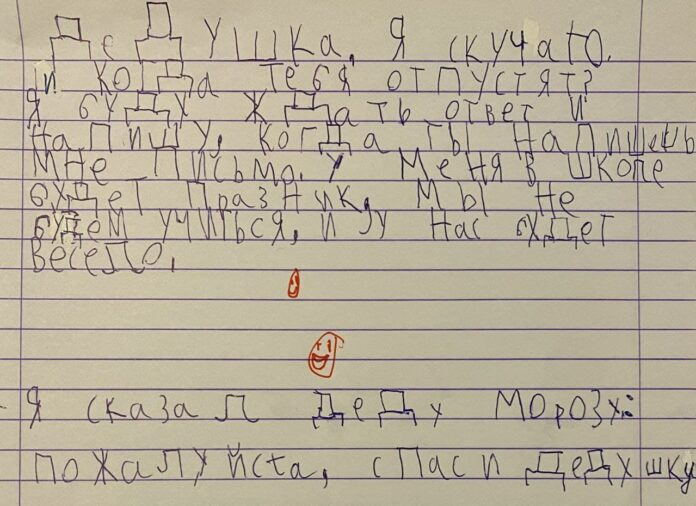 Дедушка, я скучаю.
и когда тебя отпустят?
Я буду ждать ответ и
напишу, когда ты напишешь
мне письмо. У меня в школе
будет праздник, мы не
будем учиться, и у нас будет
весело.
Я сказал Деду Морозу:
пожалуйста, спаси дедушку